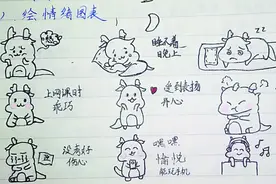 绘情绪图表
睡不着
晚上
上网课时
乖巧
受到表扬
开心
没有好
伤心
嘿嘿
愉悦
能玩手机